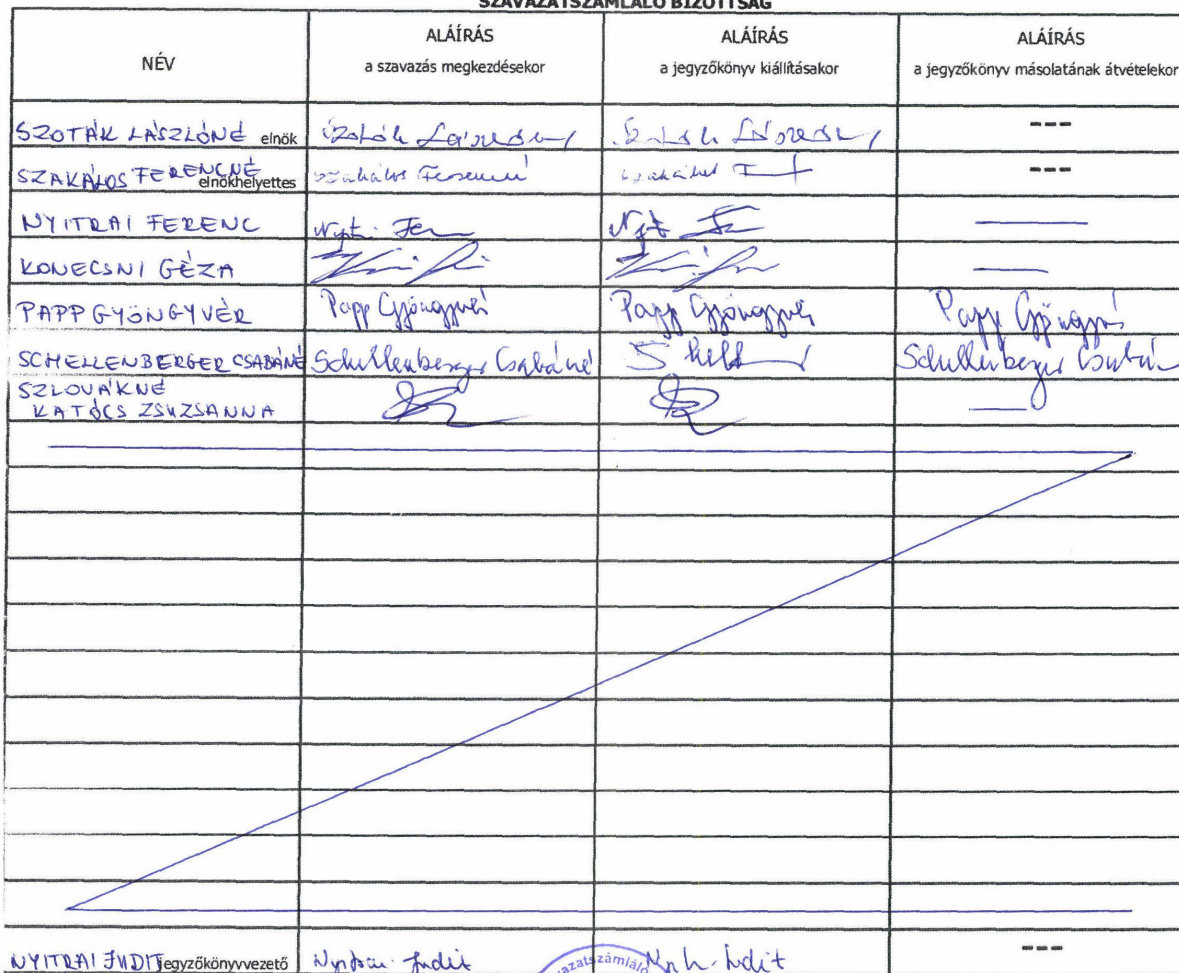 SZAVAZATSZÁMLÁLÓ BIZOTTSÁG
NÉV
ALÁÍRÁS
a szavazás megkezdésekor
ALÁÍRÁS
a jegyzőkönyv kiállításakor
ALÁÍRÁS
a jegyzőkönyv másolatának átvételekor
SZOTÁK LÁSZLÓNÉ elnök ---
SZAKÁLOS FERENCNÉ elnökhelyettes Szakálos Ferencné ---
NYITRAI FERENC
KONECSNI GÉZA
PAPP GYÖNGYVÉR Papp Gyöngyvér Papp Gyöngyvér Papp Gyöngyvér
SCHELLENBERGER CSABÁNÉ Schellenberger Csabáné Schellenberger Csabáné
SZLOVÁKNÉ
KATÓCS ZSUZSANNA
NYITRAI JUDIT jegyzőkönyvvezető Nyitrai Judit Judit ---
szavazatszámláló